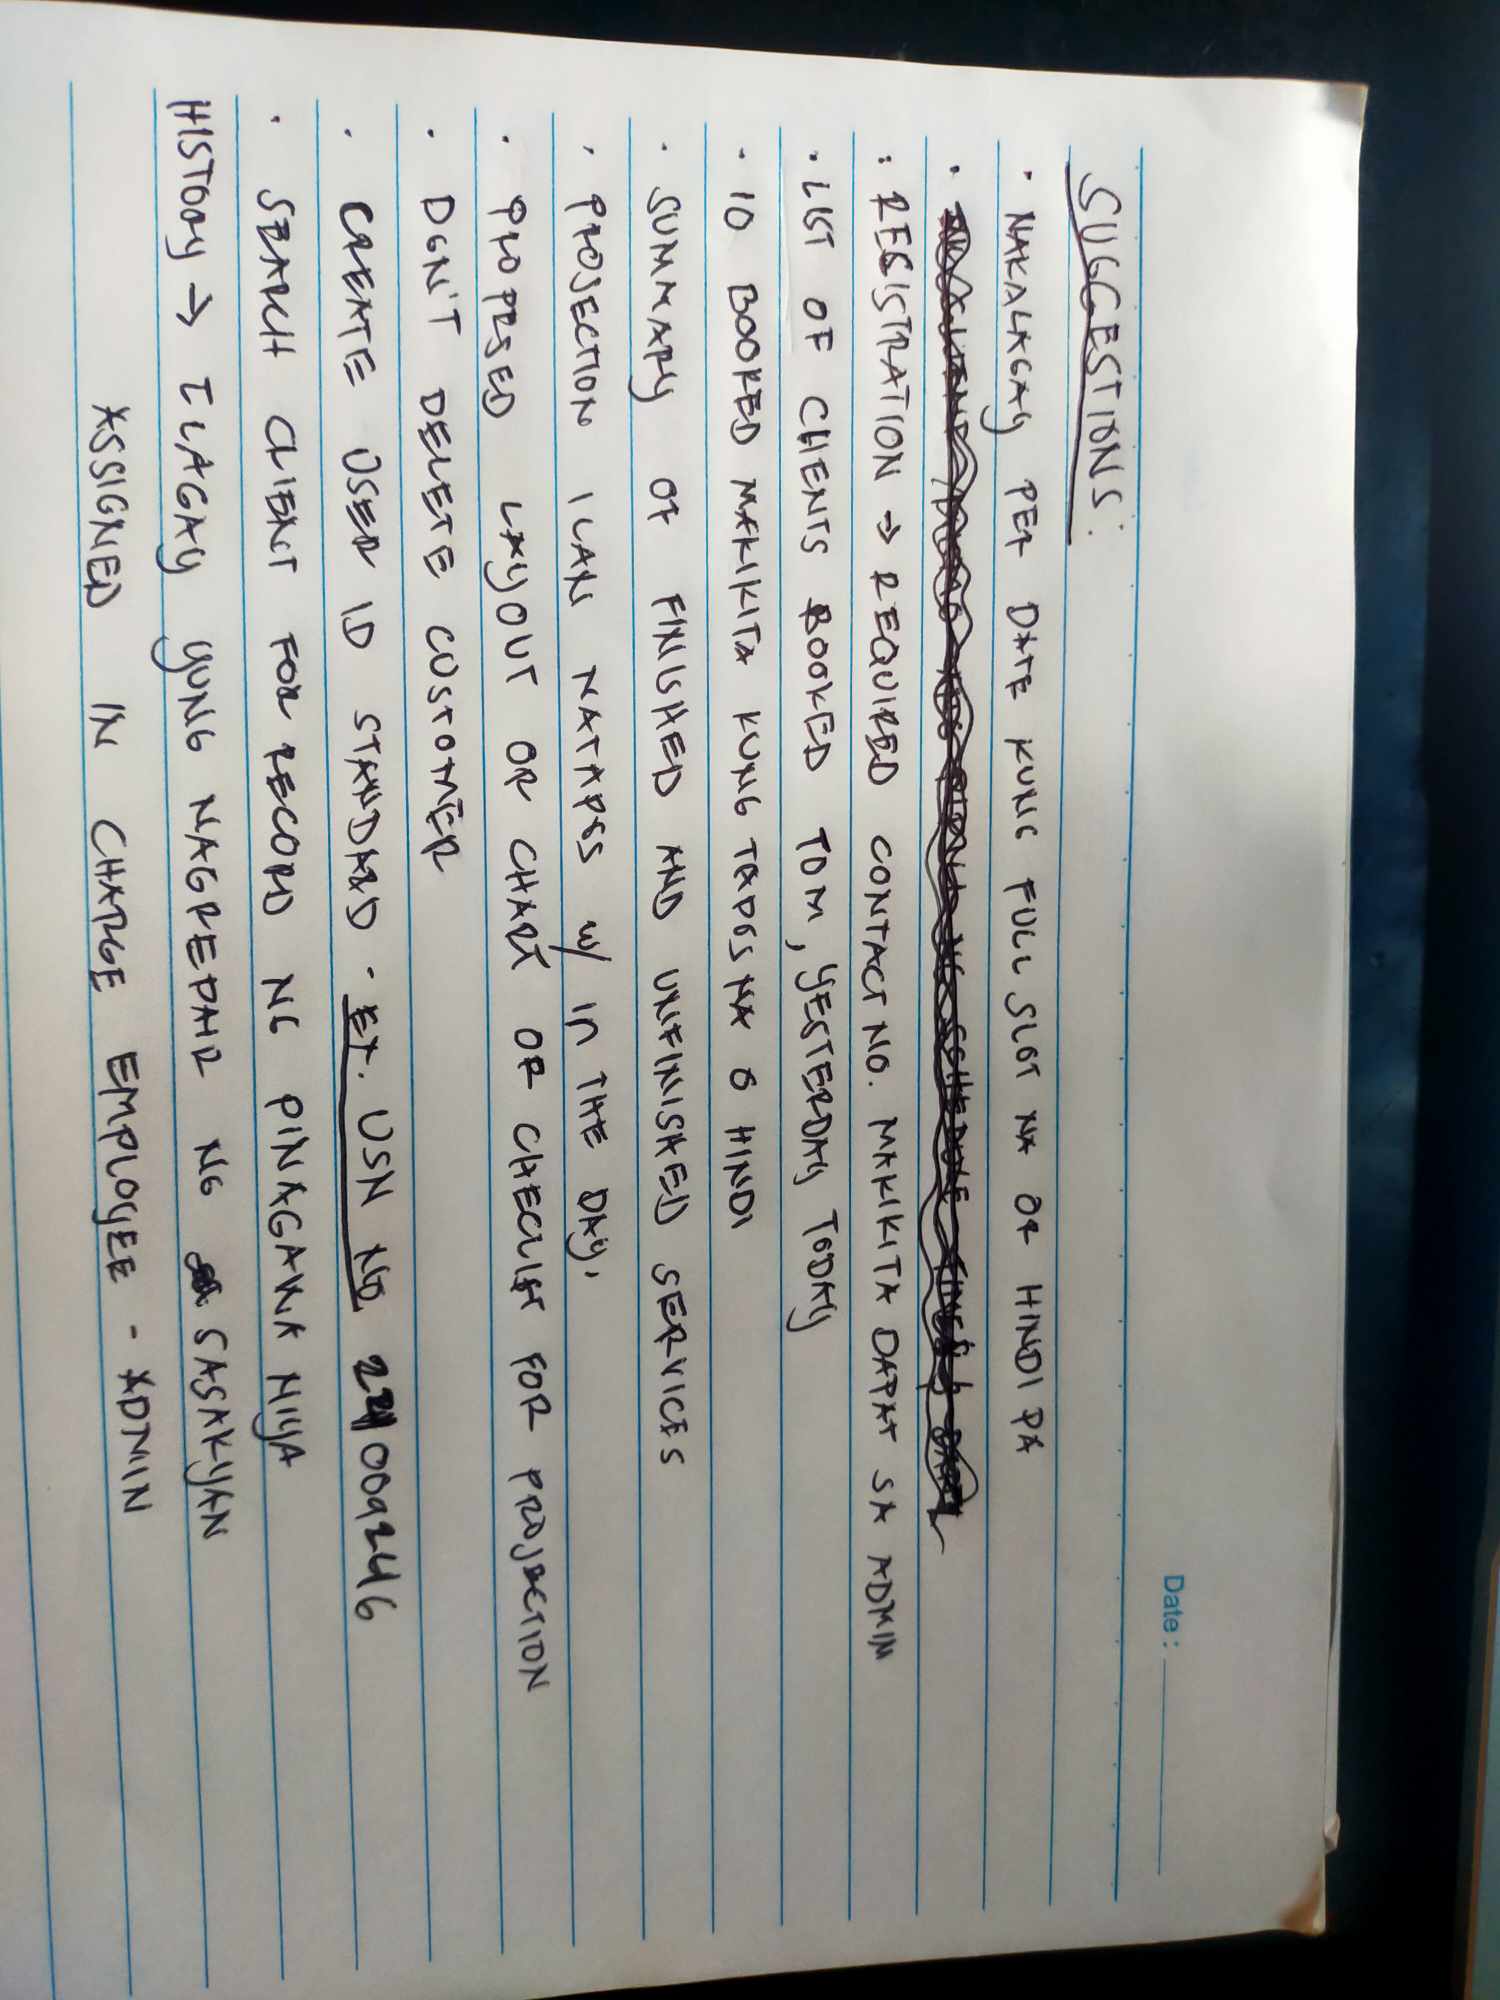 Date :
SUGGESTIONS:
· NAKALAGAY PER DATE KUNG FULL SLOT NA OR HINDI PA
·
: REGISTRATION → REQUIRED CONTACT NO. MAKIKITA DAPAT SA ADMIN
· LIST OF CLIENTS BOOKED TOM, YESTERDAY TODAY
· 10 BOOKED MAKIKITA KUNG TAPOS NA O HINDI
· SUMMARY OF FINISHED AND UNFINISHED SERVICES
· PROJECTION ILAN NATAPOS w/ in THE DAY.
· PROPOSED LAYOUT OR CHART OR CHECLIST FOR PROJECTION
· DON'T DELETE CUSTOMER
· CREATE USER ID STANDARD - EX. USN NO 221009246
· SEARCH CLIENT FOR RECORD NG PINAGAWA NIYA
HISTORY → ILAGAY YUNG NAGREPAIR NG SASAKYAN
ASSIGNED IN CHARGE EMPLOYEE - ADMIN